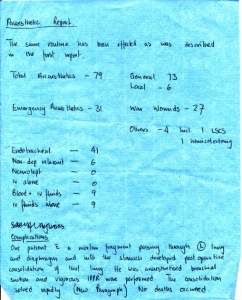 Anaesthetic Report.
The same routine has been effected as was described
in the first report.
Total Anaesthetics - 79 General 73
Local - 6
Emergency Anaesthetics - 31 War Wounds - 27
Others - 4 incl. 1 LSCS
1
Endotracheal - 41
Non-dep relaxant - 6
Neurolept - 0
IV alone - 0
Blood + IV fluids - 9
IV fluids alone - 9
Complications
One patient c a mortar fragment passing through (L) lung
and diaphragm and into the stomach developed post operative
consolidation of that lung. He was anaesthetised bronchial
suction and vigorous IPPR were performed. The consolidation
solved rapidly (New Paragraph) No deaths occurred